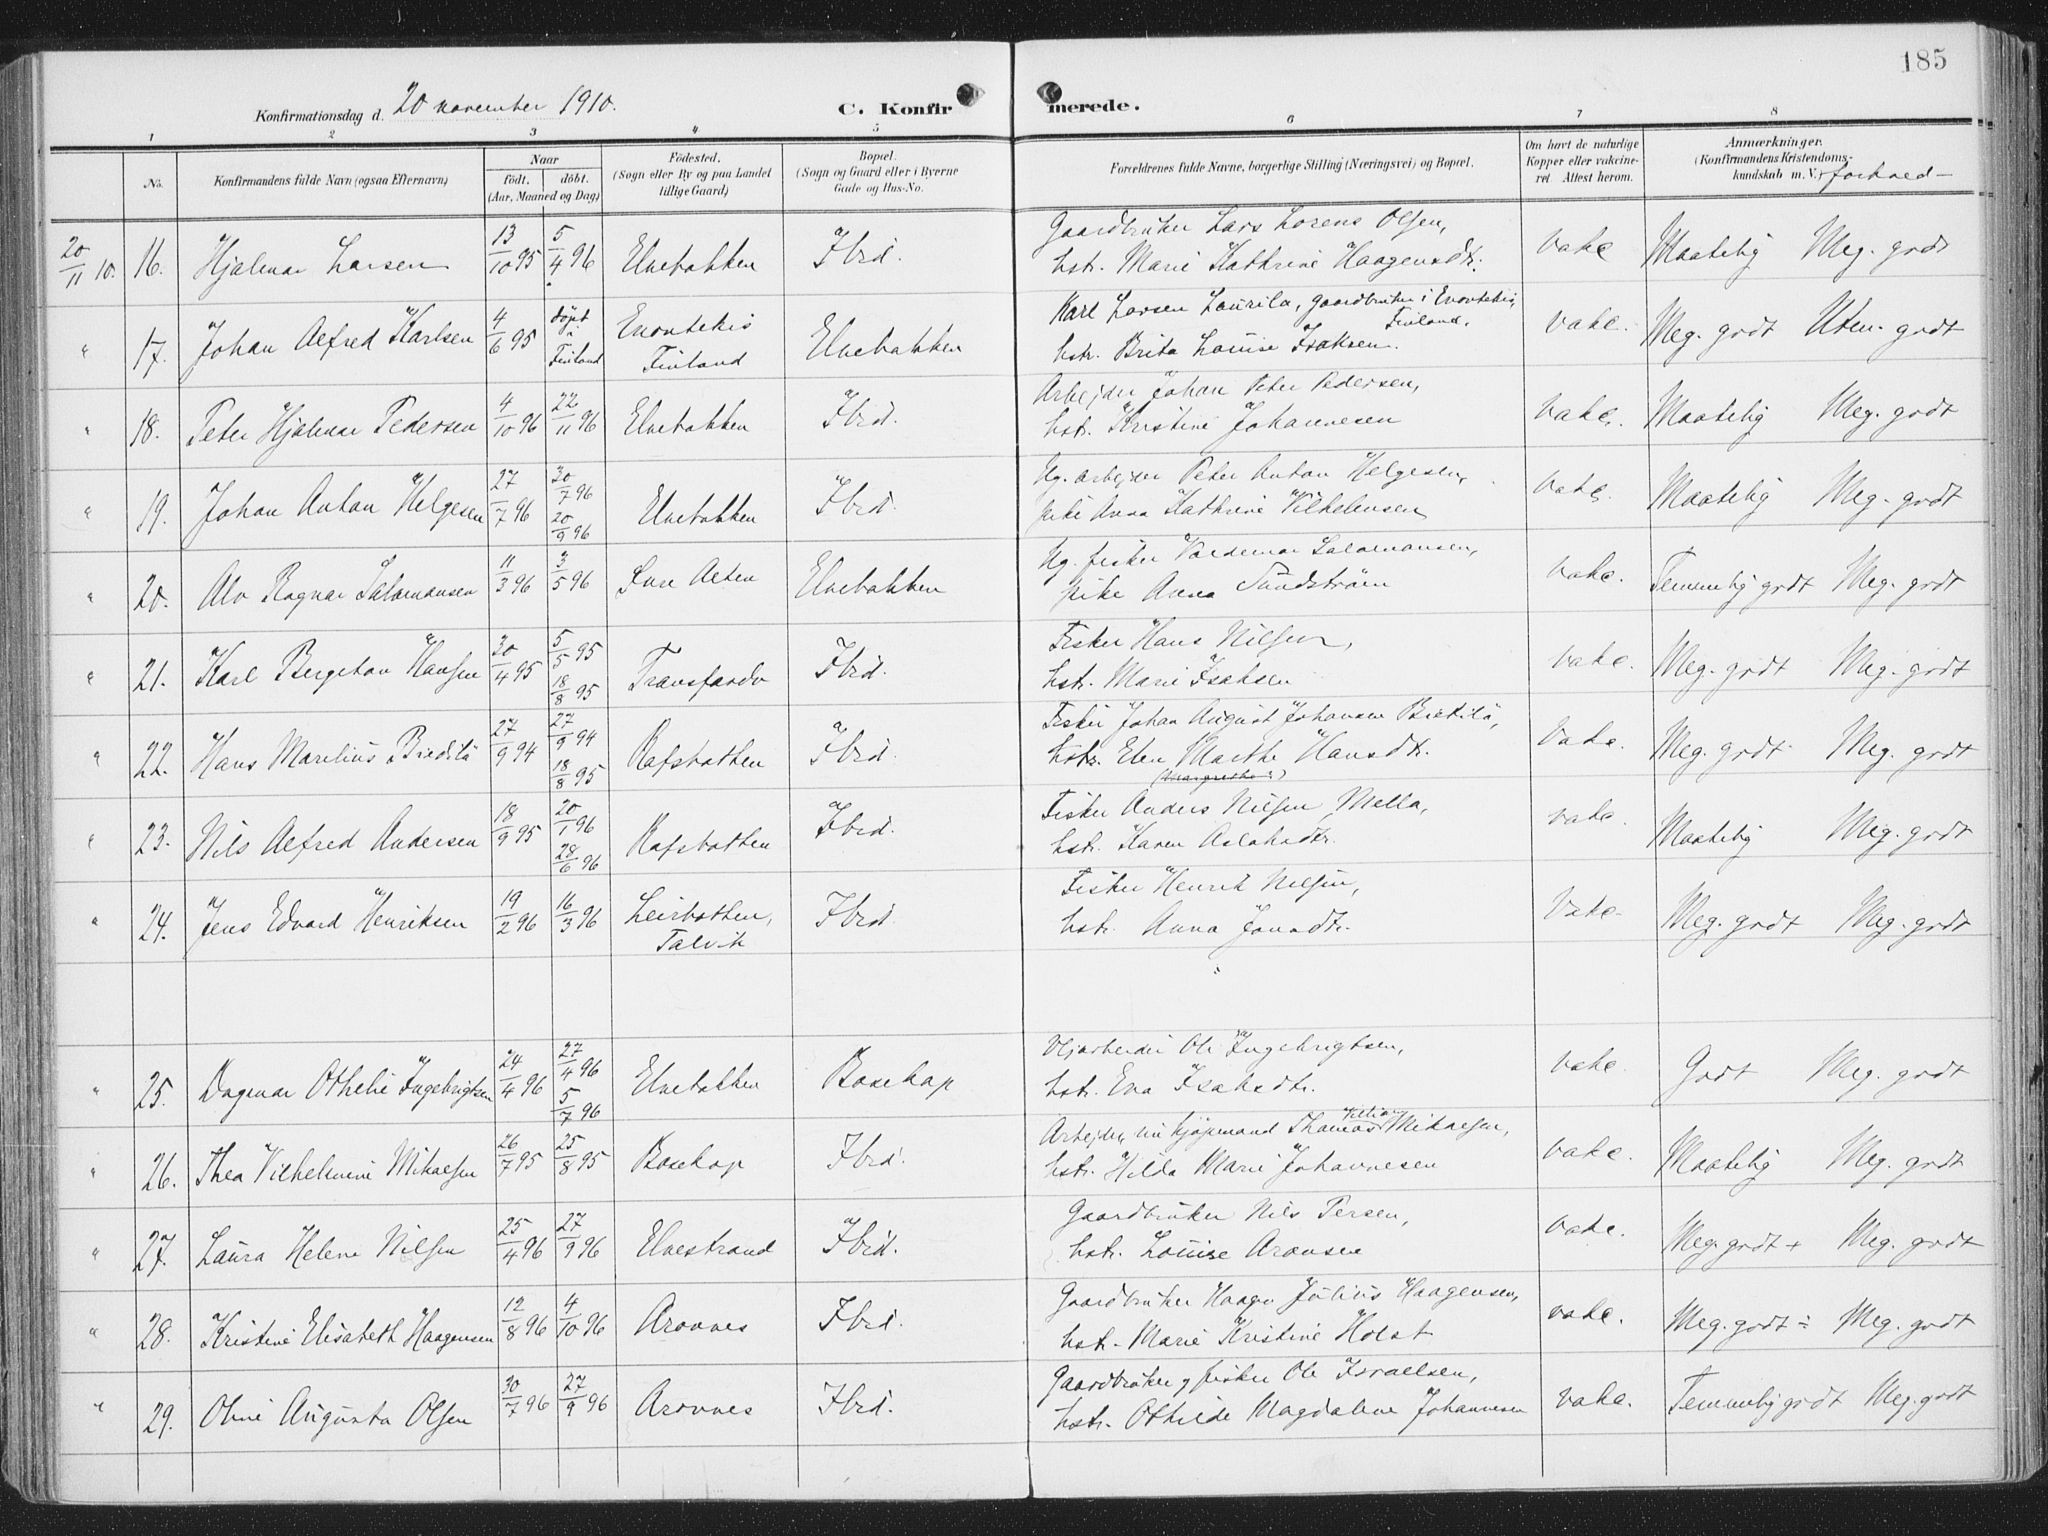 185
Konfirmationsdag d. 20 november 1910. C. Konfir merede.
1 2 3 4 5 6 7 8
No. Konfirmandens fulde Navn (ogsaa Efternavn) Naar födt. döbt. (Aar, Maaned og Dag) Födested. (Sogn eller By og paa Landet tillige Gaard) Bopæl. (Sogn og Gaard eller i Byerne Gade og Hus-No. Forældrenes fulde Navne, borgerlige Stilling (Næringsvei) og Bopæl. Om havt de naturlige Kopper eller vakcineret. Attest herom. Anmærkninger. (Konfirmandens Kristendomskundskab m. V. forhold -
20/11 10. 16. Hjalmar Larsen 13/10 95 5/4 96 Elvebakken Ibid. Gaardbruker Lars Lorens Olsen,
hstr. Marie Kathrine Haagensdtr. vakc Maatelig Meg. godt
" 17. Johan Alfred Karlsen 4/6 95 döpt i Finland Enontekis Finland Elvebakken Karl Larsen Laurila, gaardbruker i Enontekis, Finland.
hstr. Brita Louise Isaksen. vakc. Meg. godt Uten. godt
" 18. Peter Hjalmar Pedersen 4/10 96 22/11 96 Elvebakken Ibid. Arbejder Johan Peter Pedersen,
hstr. Kristine Johannesen vakc. Maatelig Meg. godt
" 19. Johan Anton Helgesen 27/7 96 30/7 96 20/9 96 Elvebakken Ibid. Ug. arbejder Peter Anton Helgesen,
pike Anna Kathrine Vilhelmsen vakc. Maatelig Meg. godt
" 20. Alv Ragnar Salamonsen 11/3 96 3/5 96 Lille Alten Elvebakken Ug. fisker Valdemar Salamonsen,
pike Anna Sundström vakc. Temmelig godt Meg. godt
" 21. Karl Bergeton Hansen 30/4 95 5/5 95 18/8 95 Transfarelv Ibid. Fisker Hans Nilsen,
hstr. Marie Isaksen vakc. Meg. godt Meg. godt
" 22. Hans Marelius Biedilä 27/9 94 27/9 94 18/8 95 Rafsbotten Ibid. Fisker Johan August Johansen Bietilä,
hstr. Elen Marthe Hansdtr. vakc. Meg. godt Meg. godt
" 23. Nils Alfred Andersen 18/9 95 20/1 96 28/6 96 Rafsbotten Ibid. Fisker Anders Nilsen Mella,
hstr. Karen Aslaksdtr. vakc. Maatelig Meg. godt
" 24. Jens Edvard Henriksen 19/2 96 16/3 96 Leirbotten, Talvik Ibid. Fisker Henrik Nilsen,
hstr. Anna Jonsdtr. Vakc. Meg. godt Meg. godt
" 25. Dagmar Othelie Ingebrigtsen 24/4 96 27/4 96 5/7 96 Elvebakken Bosekop Vejarbeider Ole Ingebrigtsen,
hstr. Eva Isaksdtr. vakc. Godt Meg. godt
" 26. Thea Vilhelmine Mikaelsen 26/7 95 25/8 95 Bosekop Ibid. Arbejder, nu kjöpmand Thomas Mikaelsen,
hstr. Hilda Marie Johannesen vakc. Maatelig Meg. godt
" 27. Laura Helene Nilsen 25/4 96 27/9 96 Elvestrand Ibid. Gaardbruker Nils Persen,
hstr. Louise Aronsen vakc. Meg. godt + Meg. godt
" 28. Kristine Elisabeth Haagensen 12/8 96 4/10 96 Aronnes Ibid. Gaardbruker Haagen Julius Haagensen,
hstr. Marie Kristine Holst vakc. Meg. godt ÷ Meg. godt
" 29. Oline Augusta Olsen 30/7 96 27/9 96 Aronnes Ibid. Gaardbruker og fisker Ole Israelsen,
hstr. Othilde Magdalene Johannesen vakc. Temmelig godt Meg. godt